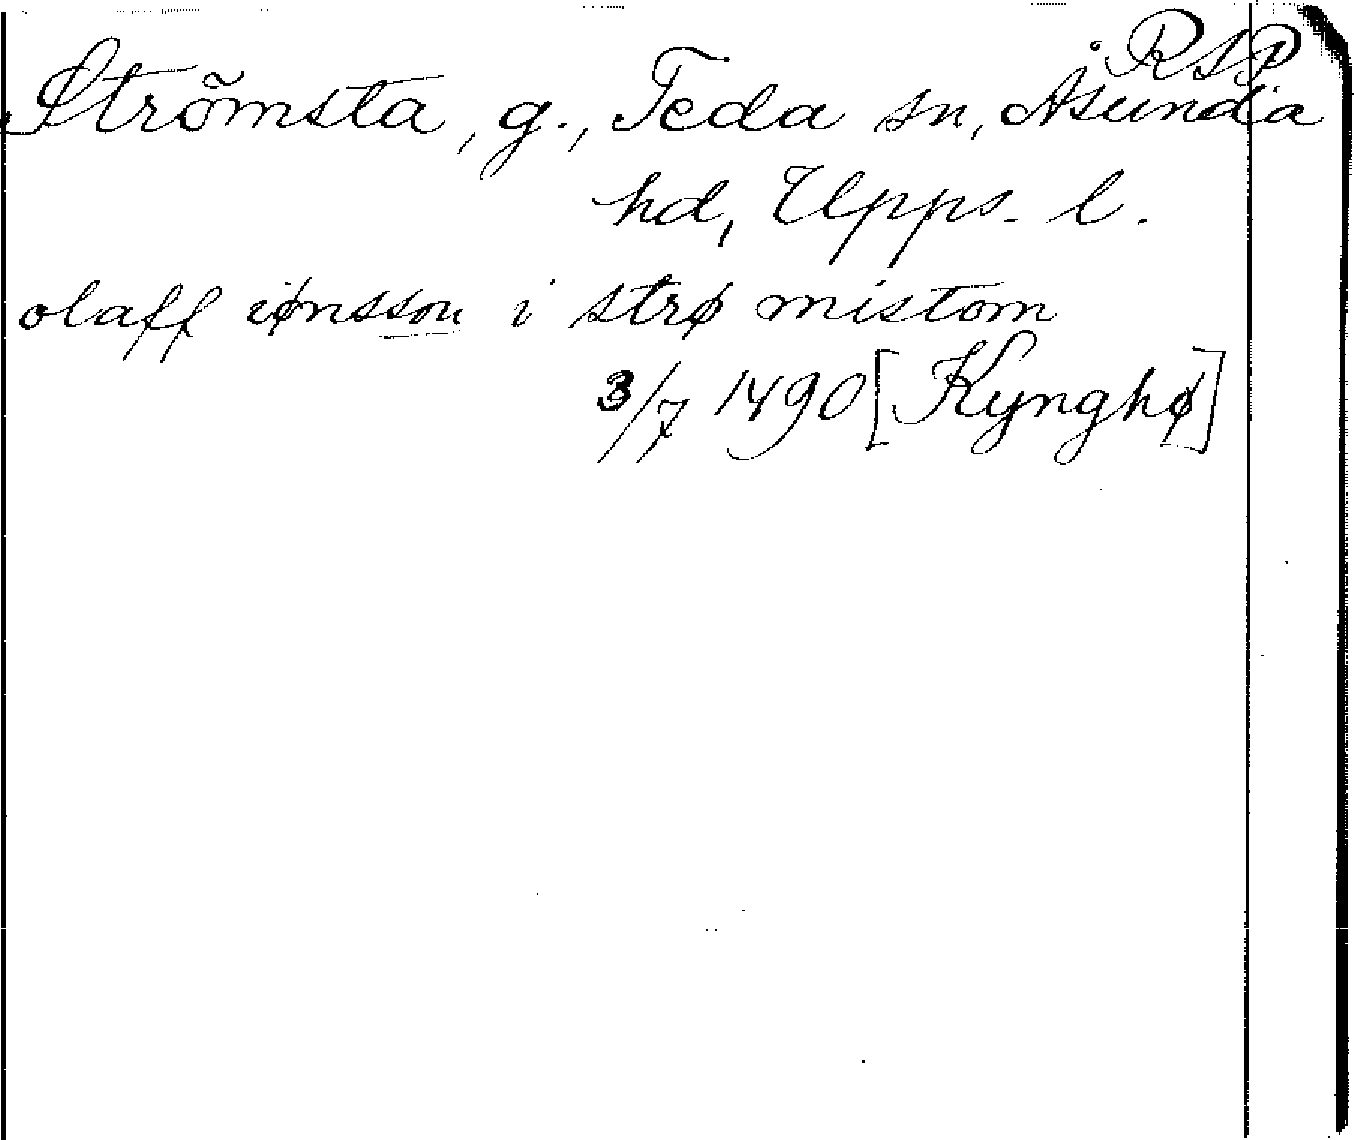 RAP
Strömsta, g., Teda sn, Åsunda
hd, Upps. l.
olaff iønsson i strø mistom
3/7 1490 [Kynghø]